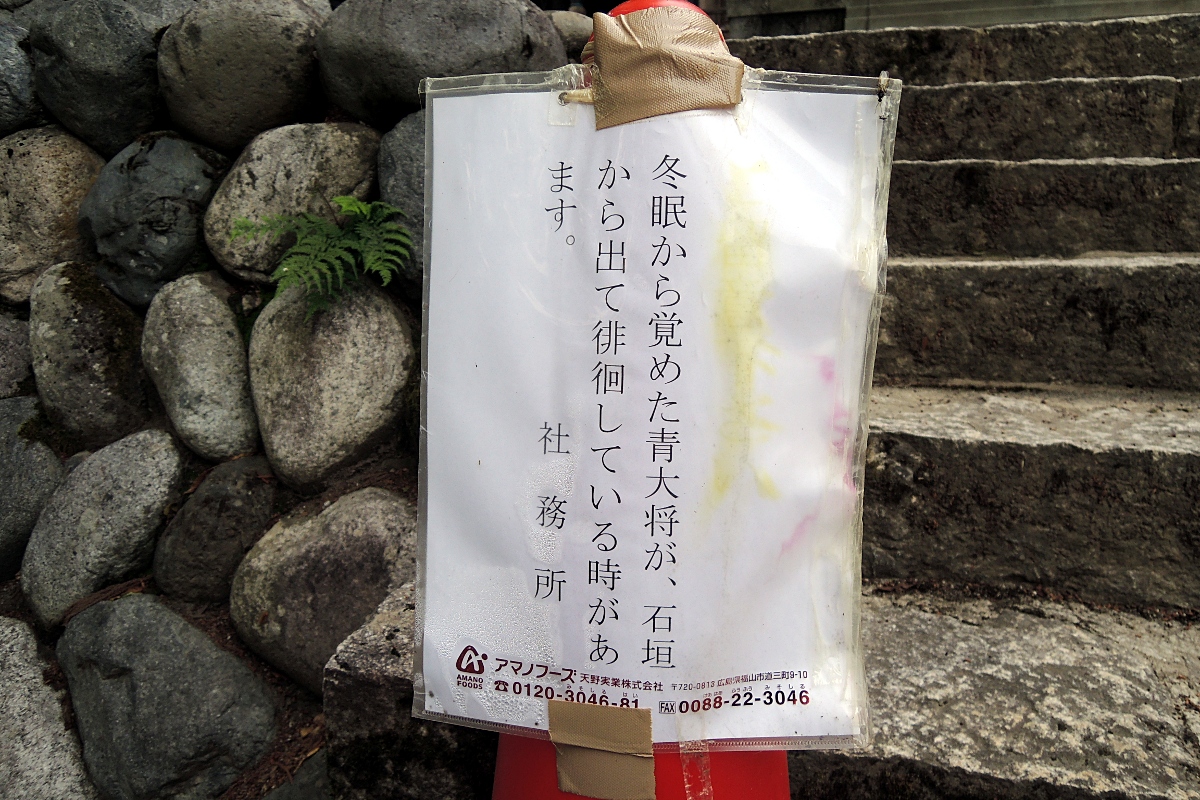 冬眠から覚めた青大将が、石垣
から出て徘徊している時があ
ます。
社務所
アマノフーズ 天野実業株式会社 〒720-0813 広島県福山市道三町9-10
AMANO FOODS
0120-3046-81 FAX 0088-22-3046